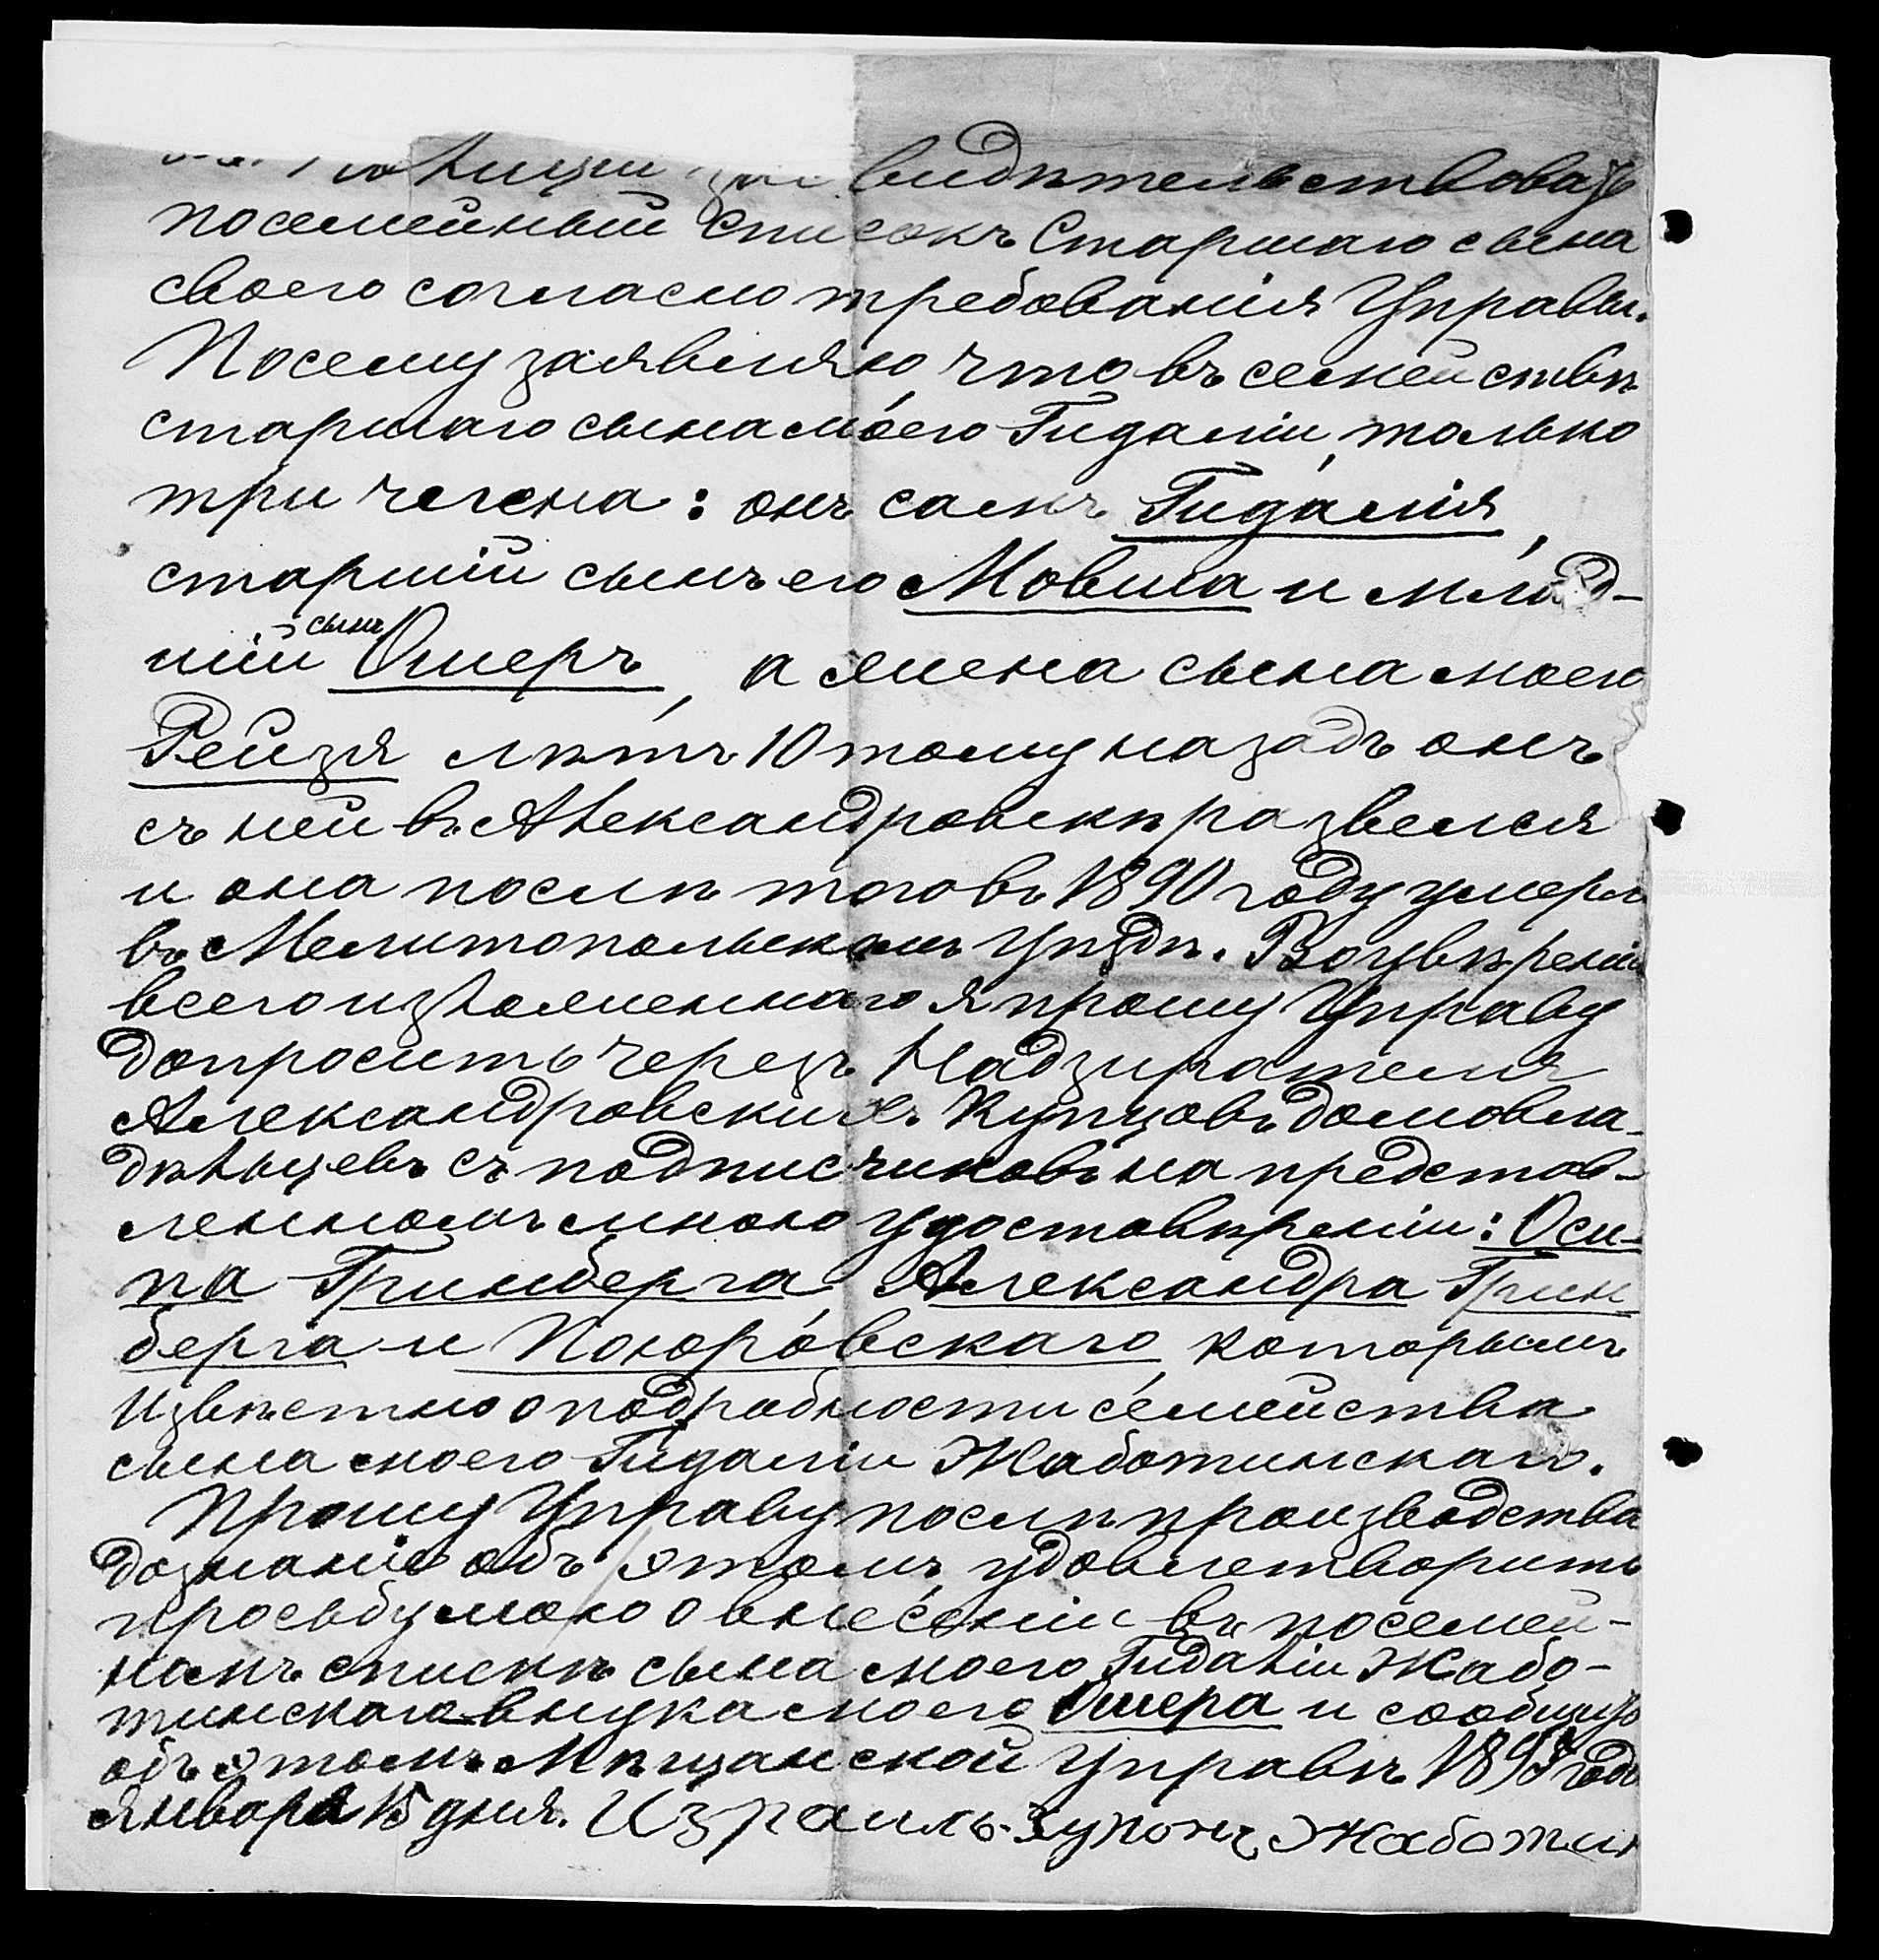 видѣтельствовать
посемейный списокъ Старшаго сына
своего согласно требованія Управы.
Посему заявляю, что въ семействѣ
старшаго сына моего Гидаліи, только
три члена: онъ самъ Гидалія,
старшій сынъ его Мовша и млад-
шій сынъ Ошеръ, а жена сына моего
Рейзя лѣтъ 10 тому назадъ онъ
съ ней въ Александровскѣ развелся
и она послѣ того въ 1890 году умерла
въ Мелитопольскомъ Уѣздѣ. Воувѣреніи
всего изложеннаго я прошу Управу
допросить черезъ Надзирателя
Александровскихъ Купцовъ домовла-
дѣльцевъ съ подписчиковъ на представ-
ленномъ мною удостовѣреніи: Оси-
па Гринберга, Александра Грин
берга и Поюровскаго, которымъ
Извѣстно о подробности семейства
сына моего Гидаліи Жаботинскаго.
Прошу Управу послѣ производства
дознанія объ этомъ, удовлетворить
просьбу мою о внесеніи въ посемей-
номъ спискѣ сына моего Гидаліи Жабо-
тинскаго внука моего Ошера и сообщить
объ этомъ Мѣщанской Управѣ. 1898 года
Января 15 дня. Израиль-Зупонъ Жаботин